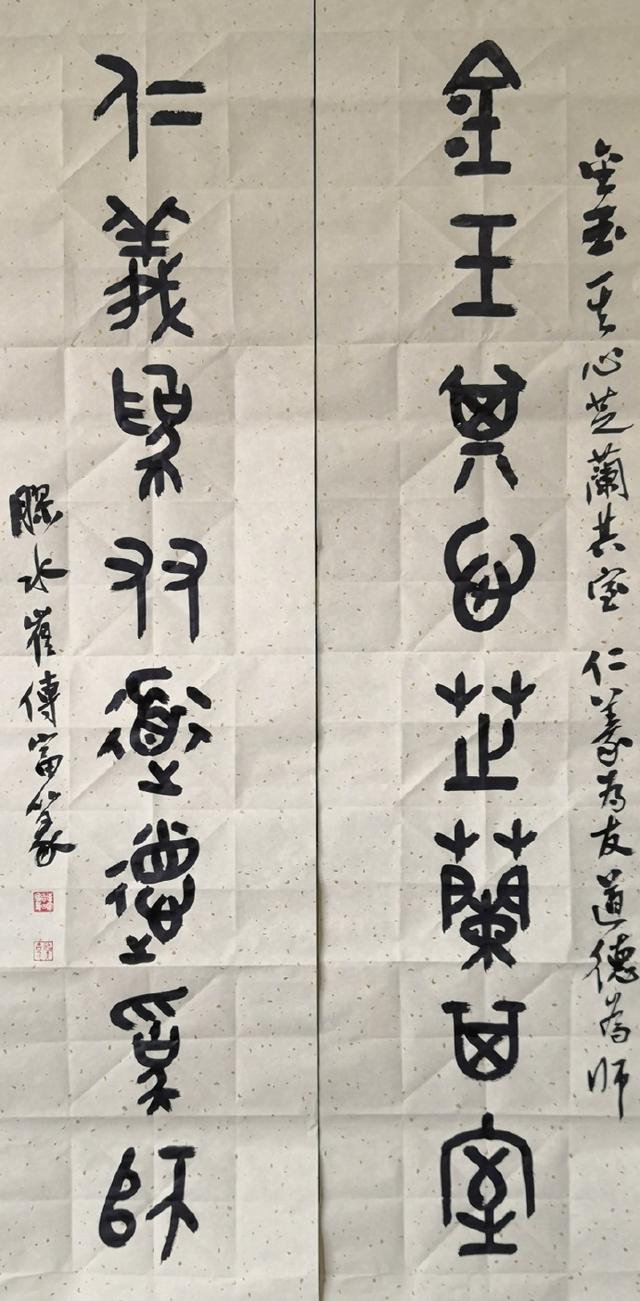 金玉其心芝蘭其室 仁義為友道德為師
金玉其心芝蘭其室
仁義為友道德為師
膠水崔傳富篆